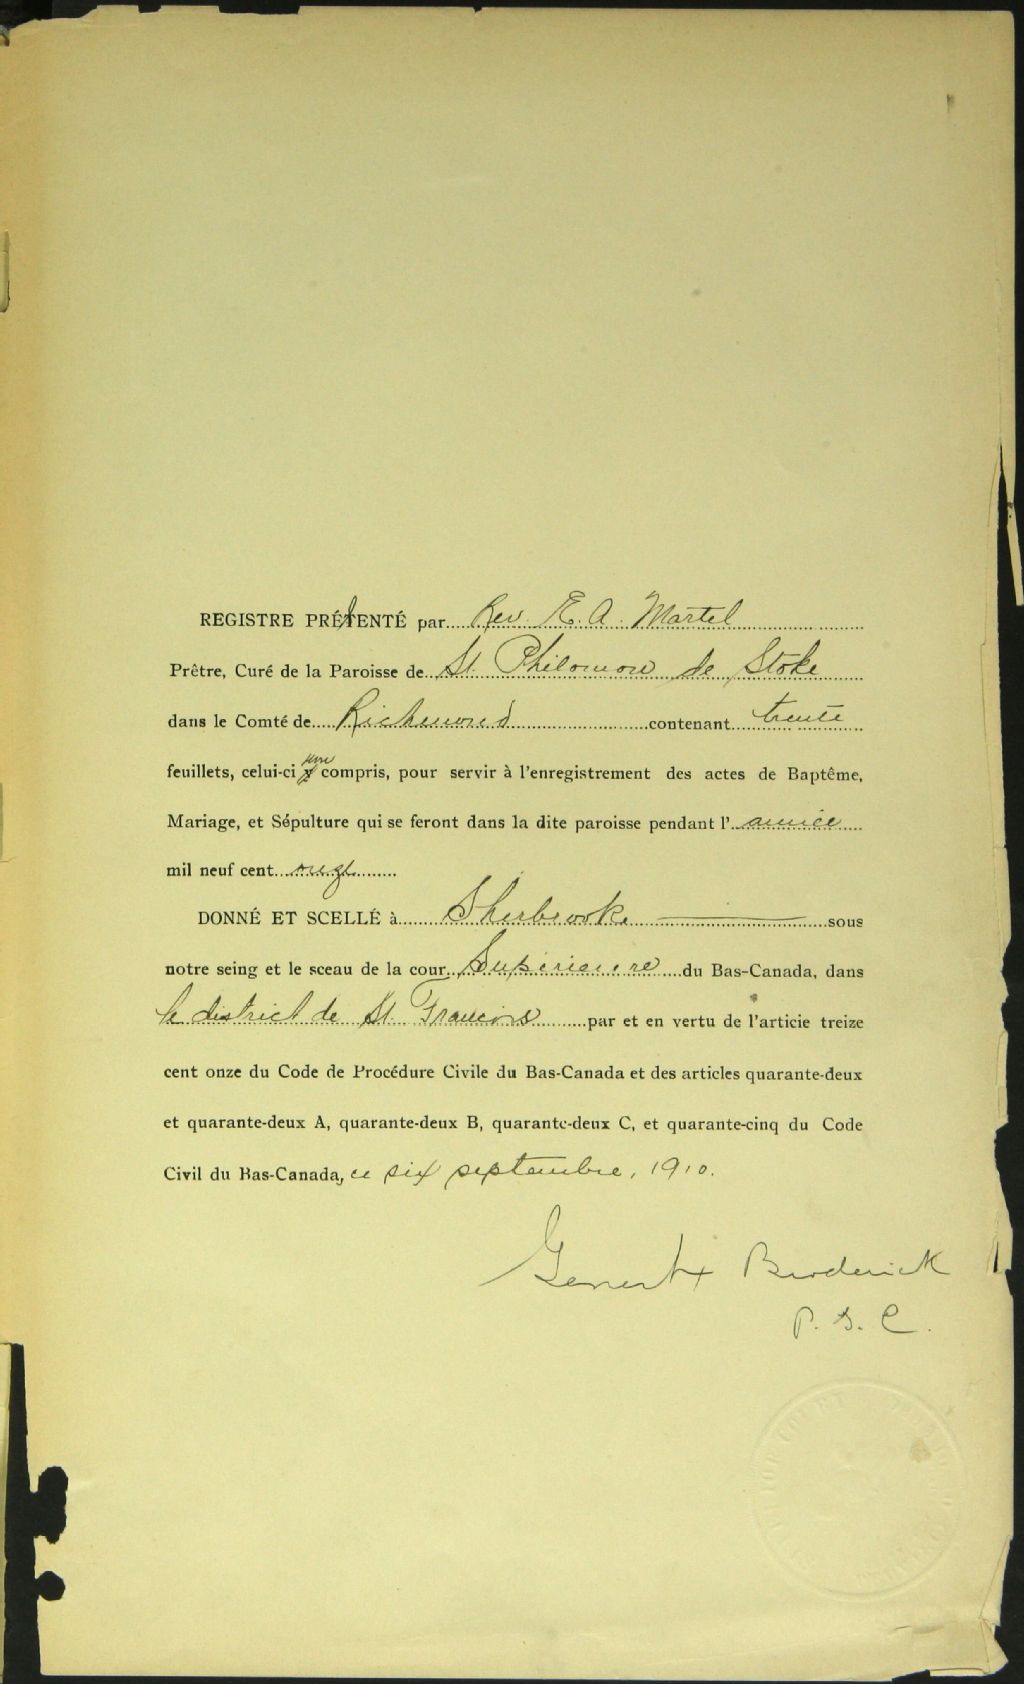 REGISTRE PRÉSENTÉ par Rev. E. A. Martel
Prêtre, Curé de la Paroisse de St. Philomon de Stoke
dans le Comté de Richmond contenant trente
feuillets, celui-ci non compris, pour servir à l'enregistrement des actes de Baptême,
Mariage, et Sépulture qui se feront dans la dite paroisse pendant l'année
mil neuf cent onze
DONNÉ ET SCELLÉ à Sherbrooke sous
notre seing et le sceau de la cour Supérieure du Bas-Canada, dans
le district de St. Francois par et en vertu de l'article treize
cent onze du Code de Procédure Civile du Bas-Canada et des articles quarante-deux
et quarante-deux A, quarante-deux B, quarante-deux C, et quarante-cinq du Code
Civil du Bas-Canada, ce six septembre, 1910.
Broderick
P. S. C.